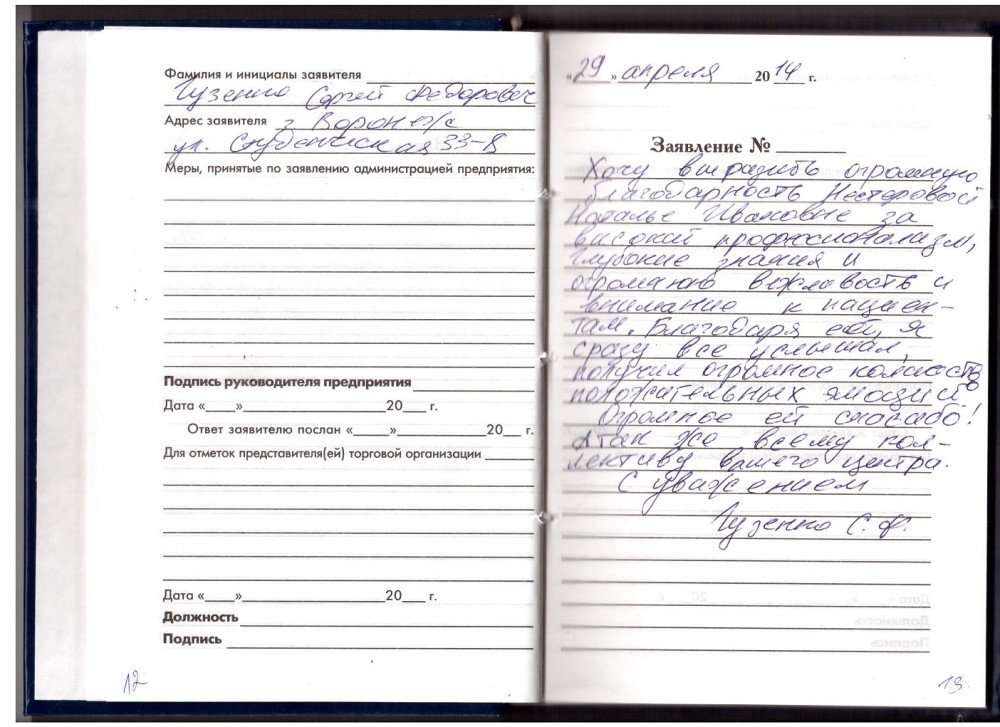 Фамилия и инициалы заявителя
Гузенко Сергей Федорович
Адрес заявителя г Воронеж
ул. Студенческая 33-8
Меры, принятые по заявлению администрацией предприятия:
Подпись руководителя предприятия
Дата «____»____20___ г.
Ответ заявителю послан «____»____20___ г.
Для отметок представителя(ей) торговой организации
Дата «____»____20___ г.
Должность
Подпись
12
«29» апреля 2014 г.
Заявление №
Хочу выразить огромную
благодарность Нестеровой
Наталье Ивановне за
высокий профессионализм,
глубокие знания и
огромную вежливость и
внимание к пациен-
там. Благодаря ей, я
сразу все услышал,
получил огромное количество
положительных эмоций.
Огромное ей спасибо!
Атак же всему кол-
лективу вашего центра.
С уважением
Гузенко С. Ф.
13